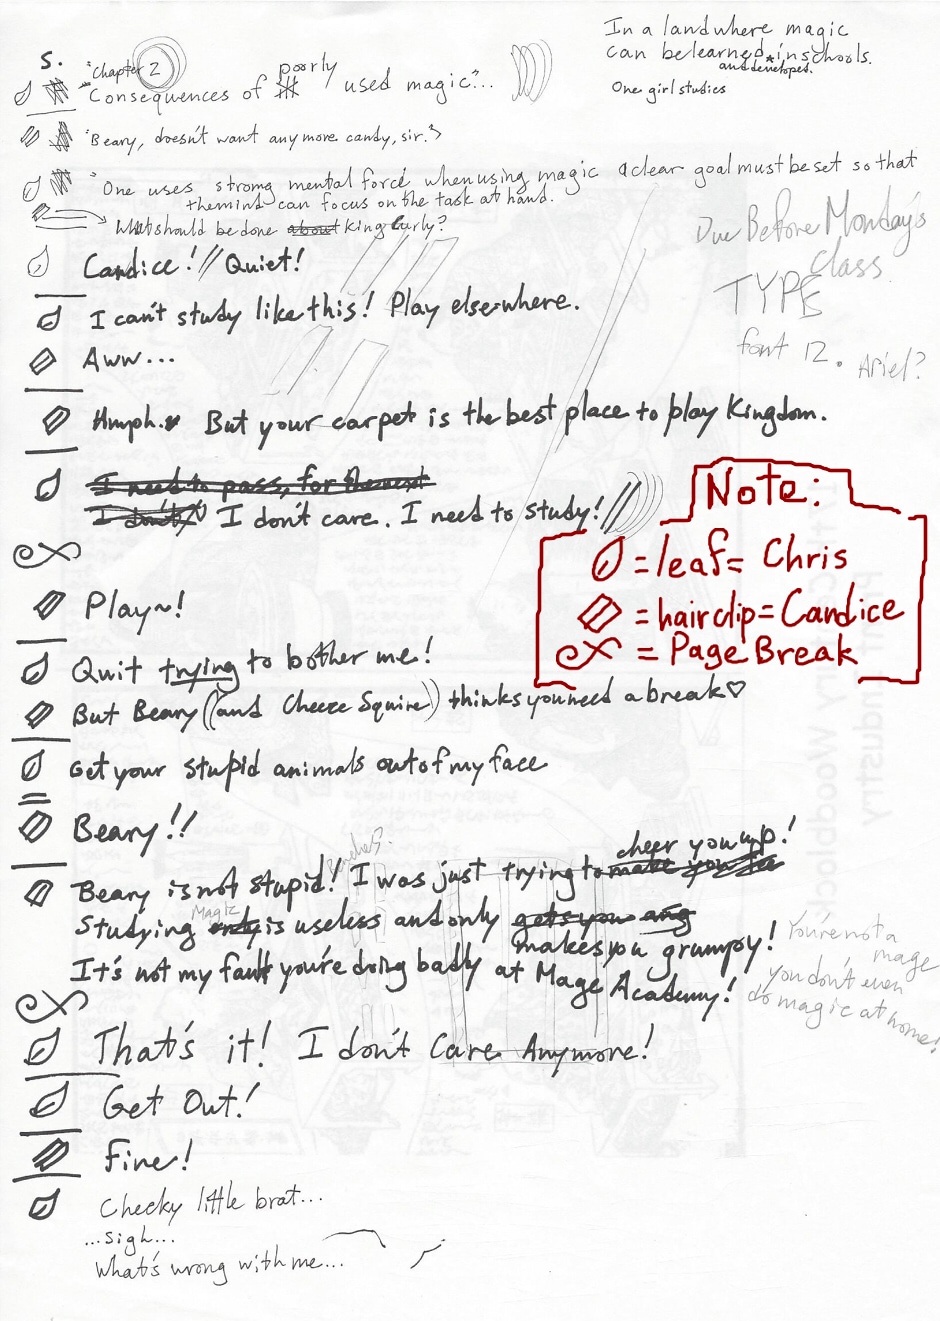 In a land where magic
can be learned in schools.
and developed.
One girl studies
5.
"Chapter 2
poorly
"Consequences of used magic"...
"Beary, doesn't want any more candy, sir."
"One uses strong mental force when using magic a clear goal must be set so that
the mind can focus on the task at hand.
What should be done about King Curly?
Due Before Monday's
class
TYPE
font 12. Ariel?
Candice! // Quiet!
I can't study like this! Play elsewhere.
Aww...
Hmph. But your carpet is the best place to play Kingdom.
I need to pass, for the next
I don't I don't care. I need to study!
Note:
= leaf = Chris
= hairclip = Candice
= Page Break
Play~!
Quit trying to bother me!
But Beary (and Cheeze Squire) thinks you need a break♡
Get your stupid animals out of my face
Beary!!
cheer you up!
Beary is not stupid! I was just trying to make you
Magic
Studying only is useless and only gets you
makes you grumpy!
It's not my fault you're doing badly at Mage Academy!
You're not a
mage
you don't even
do magic at home!
That's it! I don't Care Anymore!
Get Out!
Fine!
Cheeky little brat...
...sigh...
What's wrong with me...